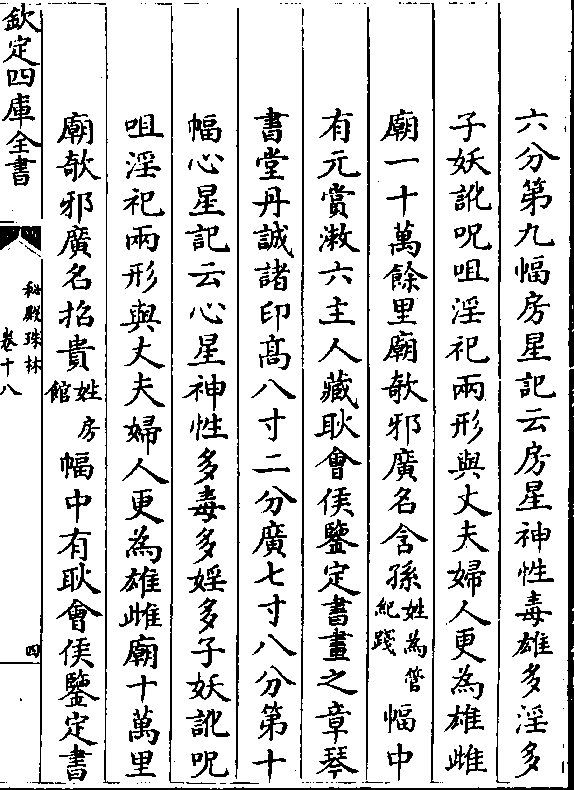 六分第九幅房星記云房星神性毒雄多淫多
子妖訛呪咀淫祀兩形與丈夫婦人更為雄雌
廟一十萬餘里廟欹邪廣名含孫姓為管紀踐幅中
有元賞漱六主人藏耿會侯鑒定書畫之章琴
書堂丹誠諸印高八寸二分廣七寸八分第十
幅心星記云心星神性多毒多婬多子妖訛呪
咀淫祀兩形與丈夫婦人更為雄雌廟十萬里
廟欹邪廣名招貴姓房館幅中有耿會侯鑒定書
欽定四庫全書
秘殿珠林
卷十八
四